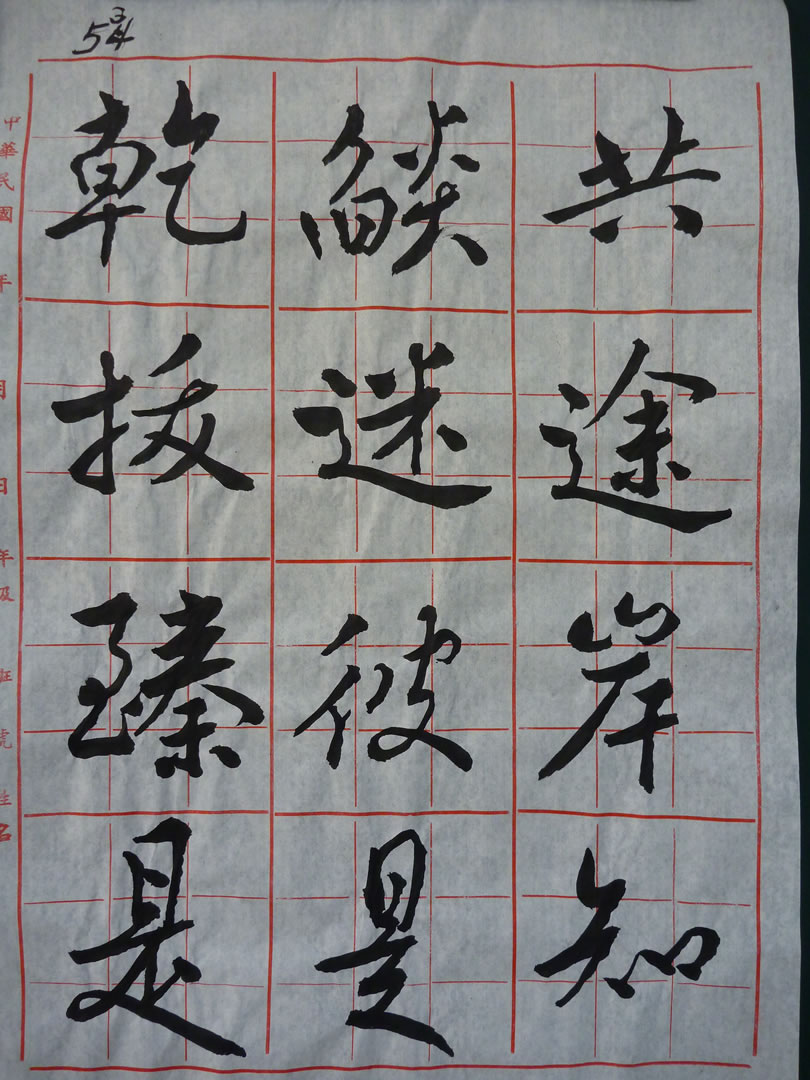 5 3/4
乾燄共
拔迷途
臻彼岸
是是知
中華民國 年 月 日 年級 班 號 姓名